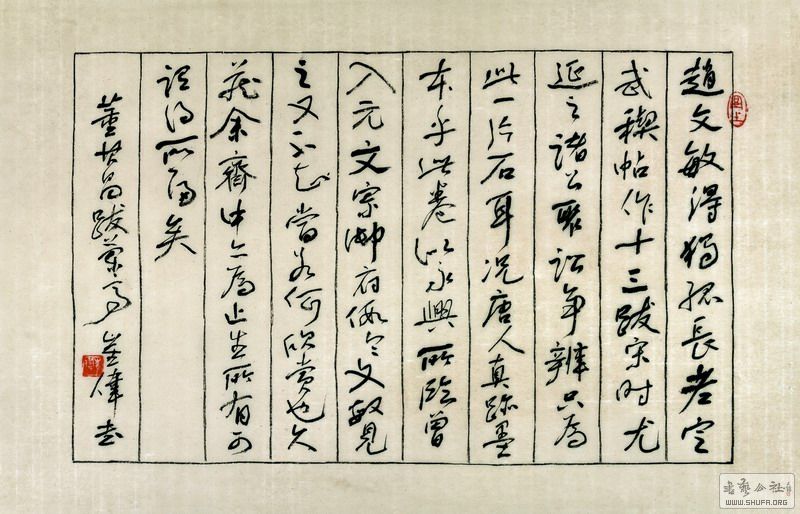 趙文敏得獨孤長老定
武禊帖作十三跋宋时尤
延之諸公聚訟爭辨只為
此一片石耳況唐人真跡墨
本乎此卷似永興所臨曾
入元文宗御府假令文敏見
之又不知當若何欣賞也久
藏余齋中今為止生所有可
謂得所歸矣
董其昌跋蘭亭 崔偉書
書藝公社
WWW.SHUFA.ORG